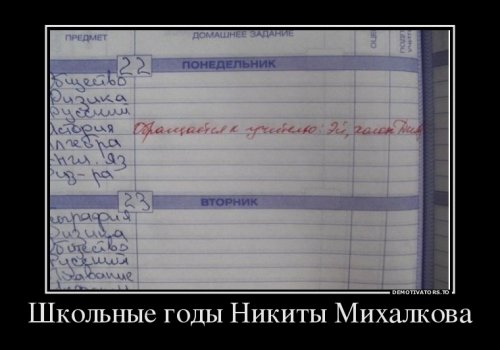 ПРЕДМЕТ
ДОМАШНЕЕ ЗАДАНИЕ
22
ПОНЕДЕЛЬНИК
Физика
Русский
История
Обращается к учителю: Эй, холоп
Алгебра
Англ. яз
Физ-ра
23
ВТОРНИК
География
Физика
Русский
DEMOTIVATORS.TO
Школьные годы Никиты Михалкова